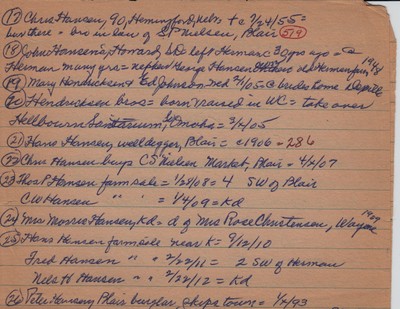 (17) Chris Hansen, 90, Hemingford, Nebr + c 7/24/55 =
bur there = bro in law of S P Nielsen, Blair (519)
(18) John Hansens, Howard, S D left Herman c 30 yrs ago =
Herman many yrs = nephew George Hansen 1948
(19) Mary Hendricksen & Ed Johnson md 2/1/05 = @ brides home
(20) Hendricksen bros = born & raised in WC = take over
Hellbourn Sanitarium, Omaha = 3/4/05
(21) Hans Hansen, well digger, Blair = c 1906 = 286
(22) Chris Hansen buys C S Nielsen Market, Blair = 4/4/07
(23) Thos P Hansen farm sale = 1/28/08 = 4 SW of Blair
CW Hansen " " = 1/4/09 = Kd
(24) Mrs Morris Hansen, Kd = d of Mrs Rose Christensen, Wayne 1909
(25) Hans Hansen farm sale near K = 9/12/10
Fred Hansen " " 2/22/11 = 2 SW of Herman
Nels H Hansen " " 2/22/12 = Kd
(26) Peter Hansen, Blair burglar, skips town = 1/2/93